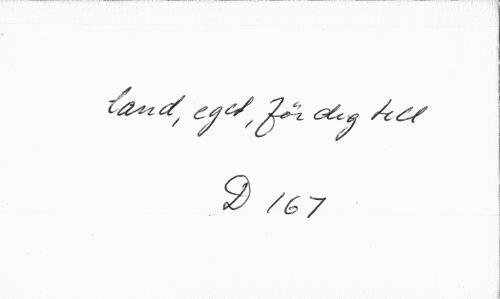 land, eget, för dig till
D 167